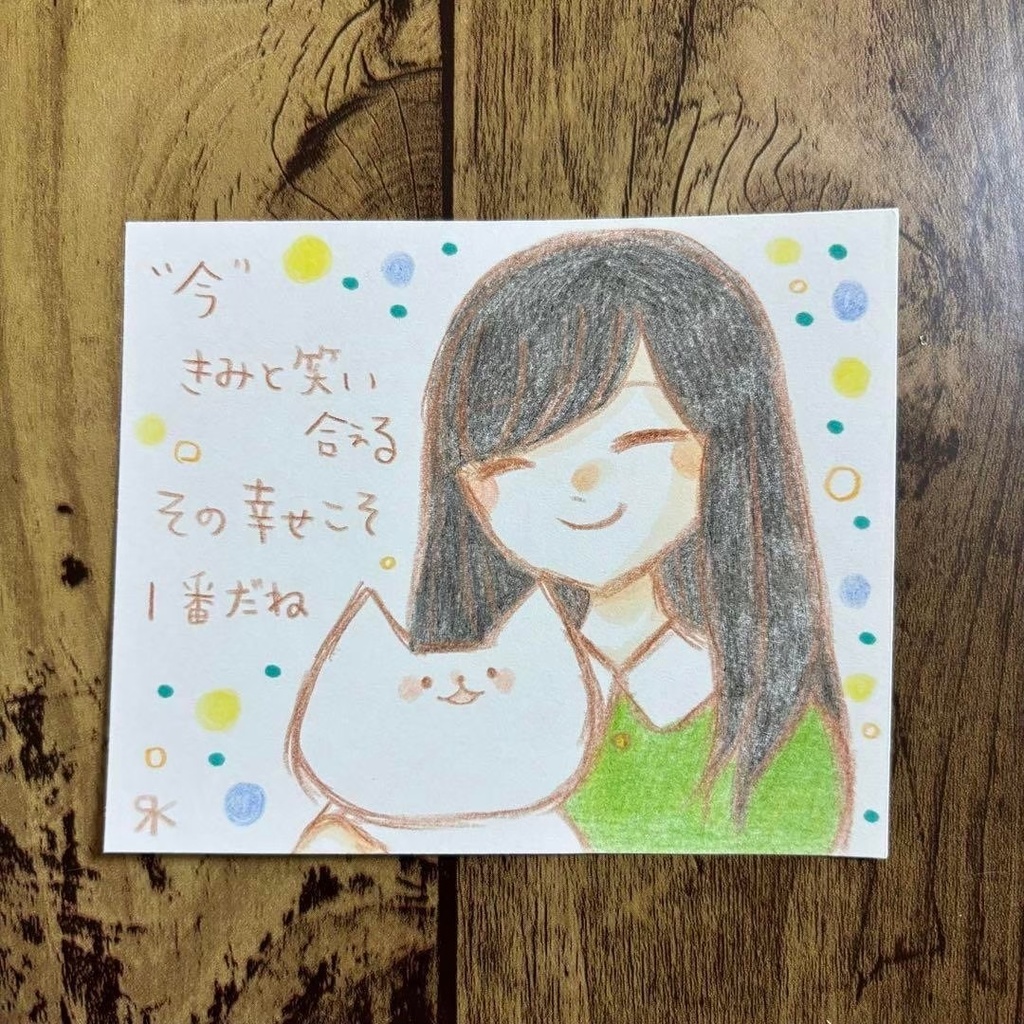 “今”
きみと笑い
合える
その幸せこそ
1番だね